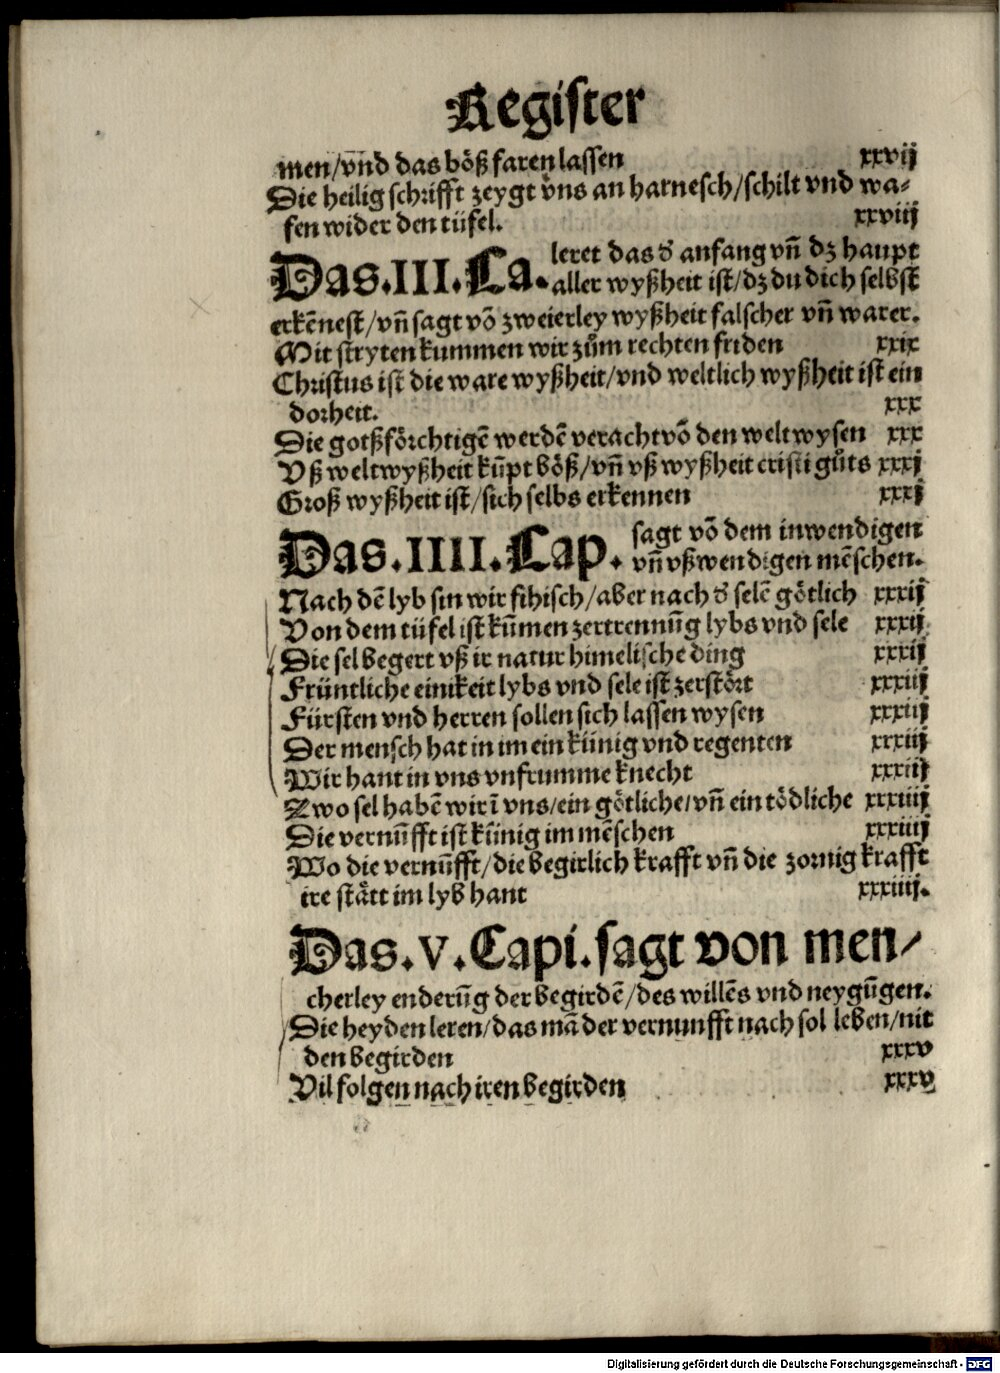 Register
men/vnd das böß faren lassen xxvij
Die heilig schrifft zeygt vns an harnesch/schilt vnd wa-
fen wider den tüfel. xxviij
Das.III.Ca. leret das d' anfang vn̄ dz haupt
aller wyßheit ist/dz du dich selbst
erkēnest/vn̄ sagt vō zweierley wyßheit falscher vn̄ warer.
Mit stryten kummen wir zům rechten friden xxix
Christus ist die ware wyßheit/vnd weltlich wyßheit ist ein
dorheit. xxx
Die gotßförchtigē werdē veracht vō den welt wysen xxx
Vß weltwyßheit kūpt böß/vn̄ vß wyßheit cristi gůts xxxj
Groß wyßheit ist/sich selbs erkennen xxxj
Das.IIII.Cap. sagt vō dem inwendigen
vn̄ vßwendigen mēschen.
Nach dē lyb sin wir fihisch/aber nach d' selē götlich xxxij
Von dem tüfel ist kūmen zertrennūg lybs vnd sele xxxij
Die sel begert vß ir natur himelische ding xxxij
Früntliche einikeit lybs vnd sele ist zerstört xxxiij
Fürsten vnd herren sollen sich lassen wysen xxxiij
Der mensch hat in im ein künig vnd regenten xxxiij
Wir hant in vns vnfrumme knecht xxxiij
Zwo sel habē wir ī vns/ein götliche/vn̄ ein tödliche xxxiiij
Die vernūfft ist künig im mēschen xxxiiij
Wo die vernūfft/die begirlich krafft vn̄ die zornig krafft
ire stätt im lyb hant xxxiiij.
Das.V.Capi.sagt von men/
cherley enderūg der begirdē/des willēs vnd neygūgen.
Die heyden leren/das mā der vernunfft nach sol leben/nit
den begirden xxxv
Vil folgen nach iren begirden xxxv
Digitalisierung gefördert durch die Deutsche Forschungsgemeinschaft - DFG